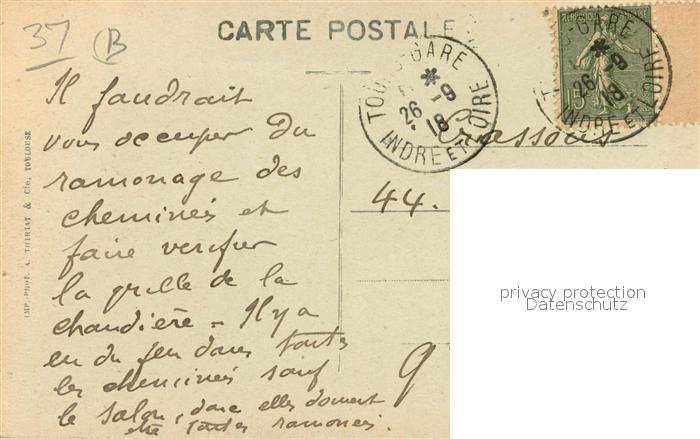 37 B
CARTE POSTALE
TOURS-GARE
* 26-9
18
INDRE ET LOIRE
TOURS-GARE
* 26-9
18
INDRE ET LOIRE
15
Il faudrait
vous occuper du
ramonage des
cheminées et
faire verifier
la grille de la
chaudière - Il y a
eu du feu dans toutes
les cheminées sauf
le salon, donc elles doivent
être toutes ramonées.
Crassous
44.
9
IMP.-PHOT. A. THIRIAT & Cie, TOULOUSE
privacy protection
Datenschutz